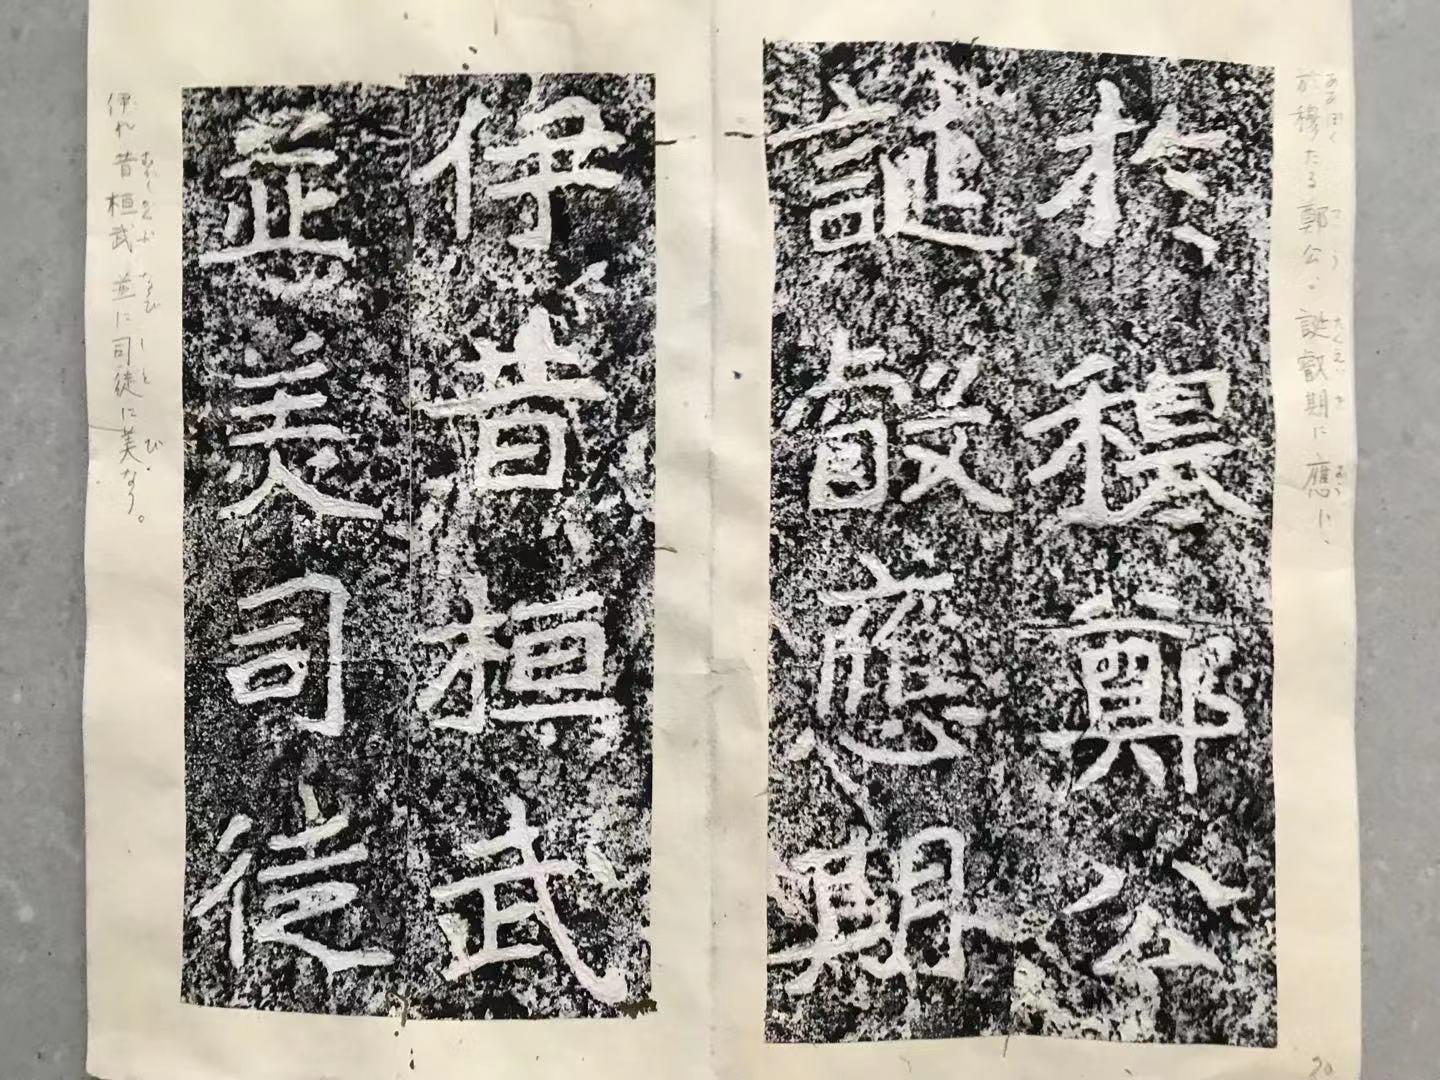 於穆たる鄭公、誕叡期に應じ、
於穆鄭公
誕叡應期
伊昔桓武
並美司徒
伊れ昔桓武並に司徒に美なり。
20